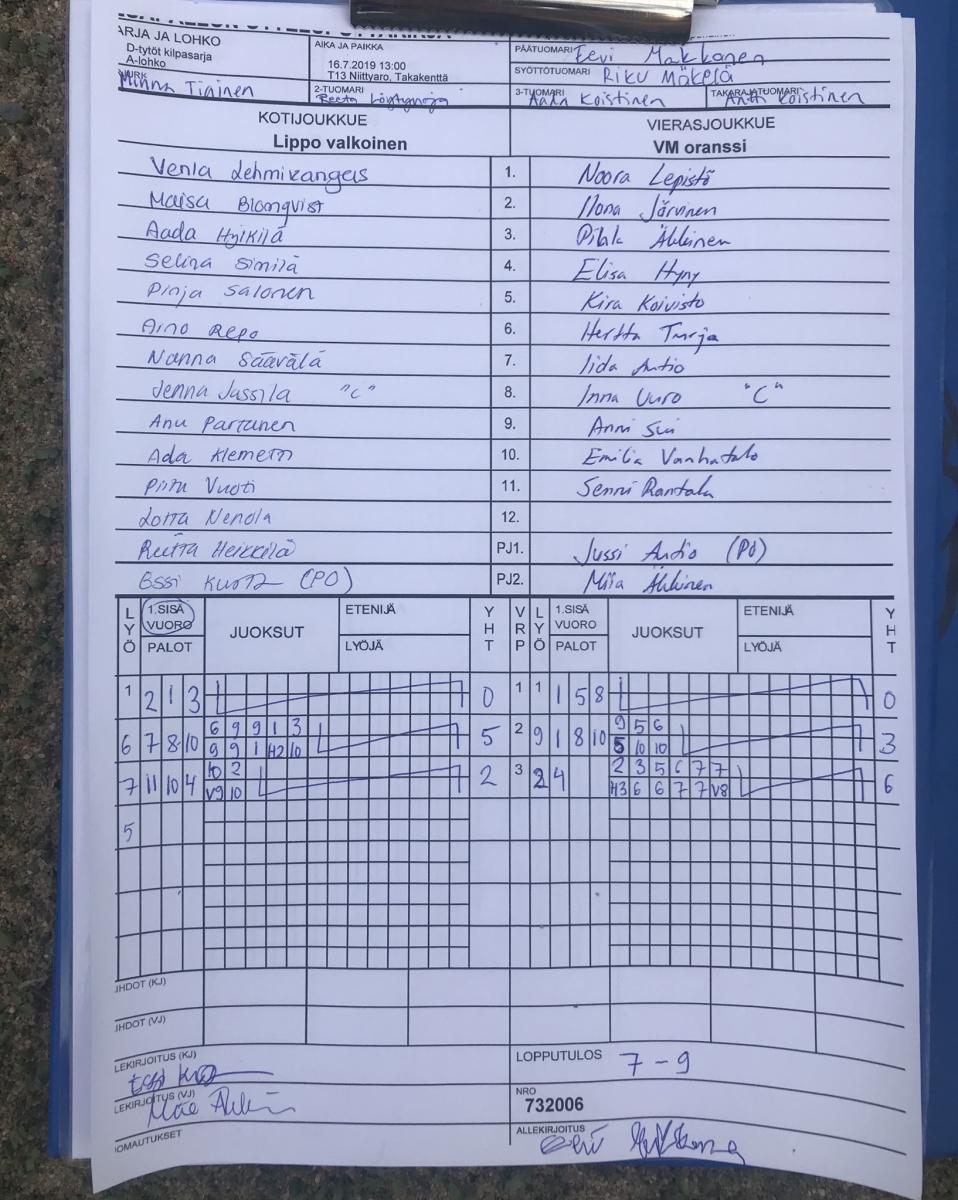 ARJA JA LOHKO
D-tytöt kilpasarja
A-lohko
AIKA JA PAIKKA
16.7.2019 13:00
T13 Niittyaro, Takakenttä
PÄÄTUOMARI Eevi Makkonen
SYÖTTÖTUOMARI Riku Mäkelä
Minna Tiainen
2-TUOMARI
Reeta
3-TUOMARI
Koistinen
TAKARAJATUOMARI
Antti Koistinen
KOTIJOUKKUE
Lippo valkoinen
VIERASJOUKKUE
VM oranssi
Venla Lehmikangas 1. Noora Lepistö
Maisa Blomqvist 2. Ilona Järvinen
Aada Hyikilä 3. Ähkinen
Selina Similä 4. Elisa Hyny
Pinja Salonen 5. Kira Koivisto
Aino Repo 6. Hertta Turja
Nanna Säävälä 7. Iida Autio
Jenna Jussila "C" 8. Inna Uuro "C"
Anu Partanen 9. Anni
Ada Klemetti 10. Emilia Vanhatalo
Piitu Vuoti 11. Senni Rantala
Lotta Nenola 12.
Reetta Heikkilä PJ1. Jussi Autio (PO)
Essi (PO) PJ2. Miia Ähkinen
LYÖ 1.SISÄ VUORO PALOT JUOKSUT ETENIJÄ LYÖJÄ YHT VRP LYÖ 1.SISÄ VUORO PALOT JUOKSUT ETENIJÄ LYÖJÄ YHT
1 2 1 3 0 1 1 1 5 8 0
6 9 9 1 3 9 5 6
6 7 8 10 5 2 9 1 8 10 3
9 9 1 H2 10 5 10 10
10 2 2 3 5 6 7 7
7 11 10 4 2 3 2 4 6
V9 10 H3 6 6 7 7 V8
5
UHDOT (KJ)
UHDOT (VJ)
LEKIRJOITUS (KJ)
LOPPUTULOS 7 - 9
LEKIRJOITUS (VJ)
NRO
732006
OMAUTUKSET
ALLEKIRJOITUS